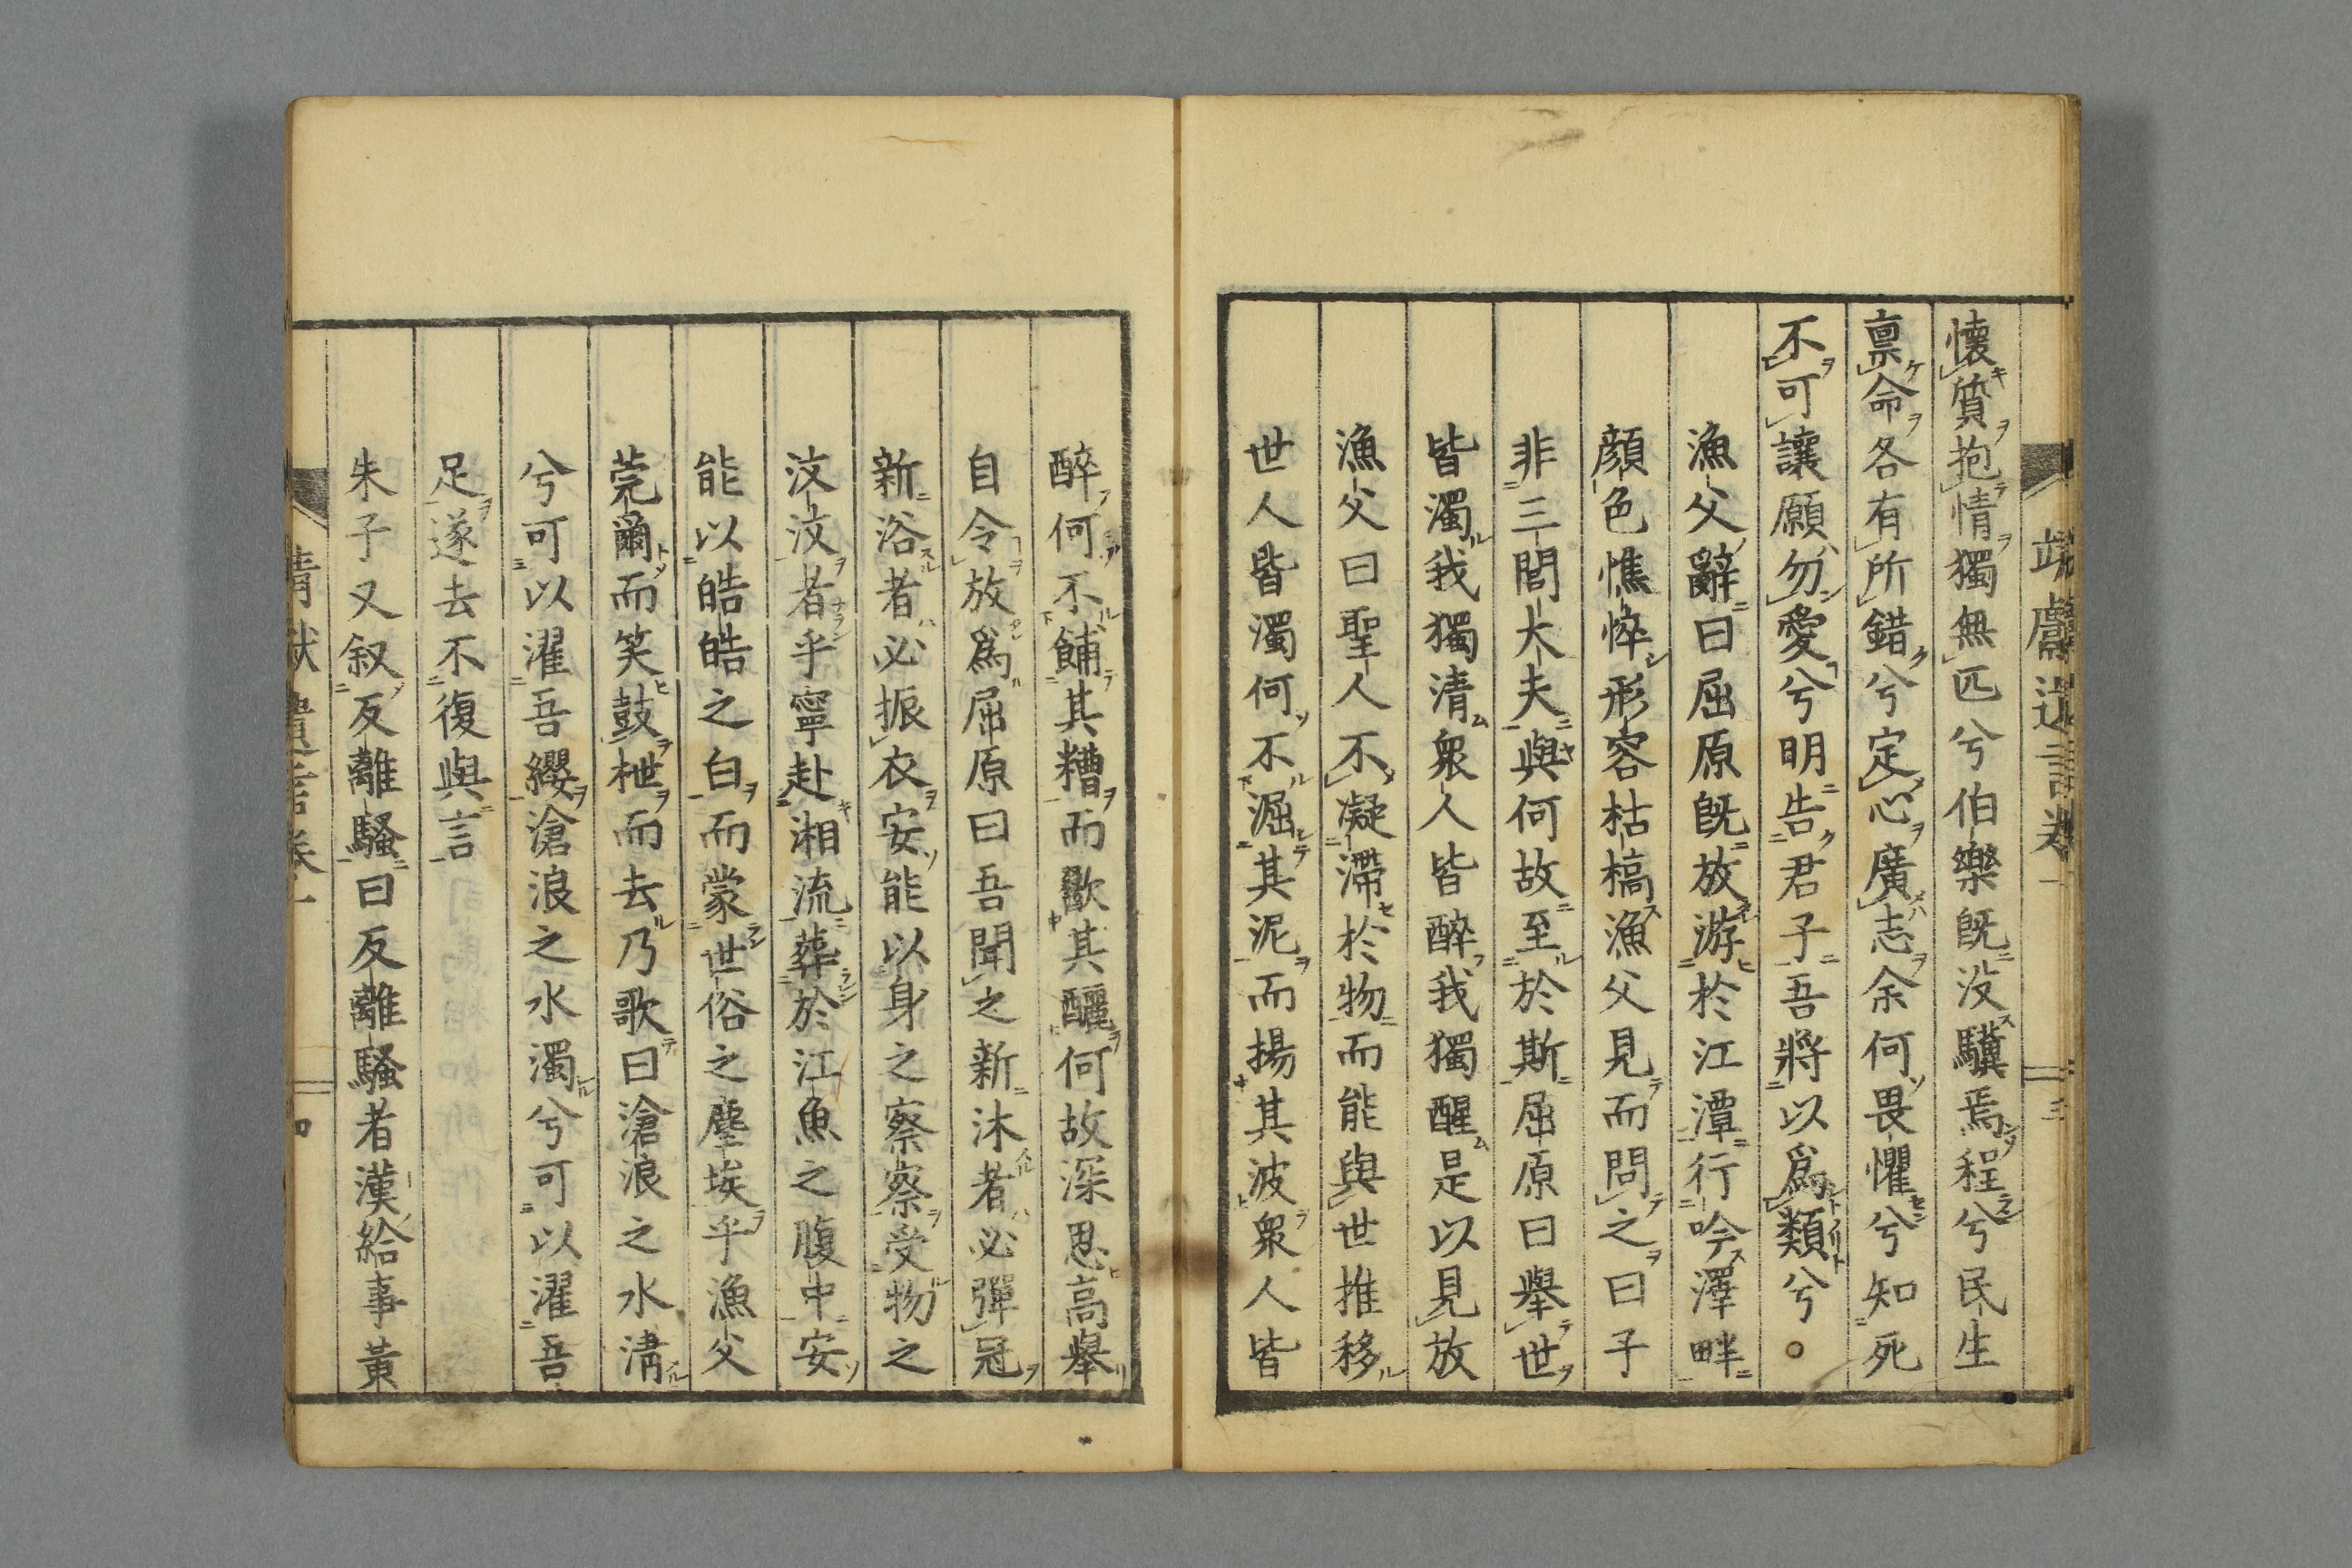 懷質抱情獨無匹兮伯樂旣沒驥焉程兮民生
禀命各有所錯兮定心廣志余何畏懼兮知死
不可讓願勿愛兮明告君子吾將以爲類兮。
漁父辭曰屈原旣放游於江潭行吟澤畔
顔色憔悴形容枯槁漁父見而問之曰子
非三閭大夫與何故至於斯屈原曰舉世
皆濁我獨清衆人皆醉我獨醒是以見放
漁父曰聖人不凝滯於物而能與世推移
世人皆濁何不淈其泥而揚其波衆人皆
醉何不餔其糟而歠其釃何故深思高舉
自令放爲屈原曰吾聞之新沐者必彈冠
新浴者必振衣安能以身之察察受物之
汶汶者乎寧赴湘流葬於江魚之腹中安
能以皓皓之白而蒙世俗之塵埃乎漁父
莞爾而笑鼓枻而去乃歌曰滄浪之水淸
兮可以濯吾纓滄浪之水濁兮可以濯吾
足遂去不復與言
朱子又叙反離騷曰反離騷者漢給事黃